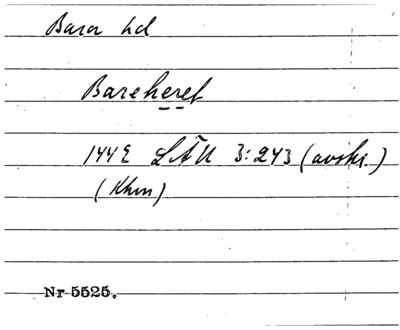 Bara hd
Bareheret
1442 SÄU 3:243 (avskr.)
(Khvn)
Nr 5525.